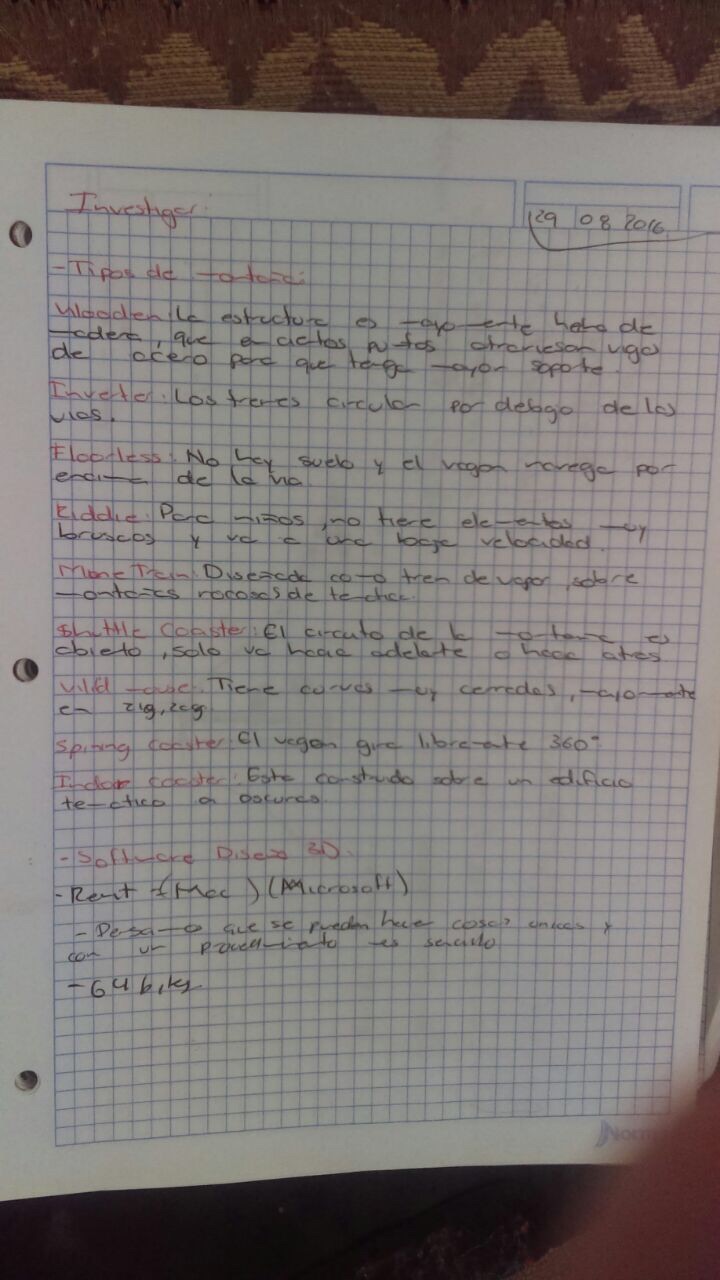 Investigar:
29 08 2016
- Tipos de montaña:
Wooden: La estructura es mayormente hecha de
madera, que en ciertos puntos atraviesan vigas
de acero para que tenga mayor soporte.
Inverter: Los trenes circulan por debajo de las
vias.
Floorless: No hay suelo y el vagon navega por
encima de la via
Kiddie: Para niños, no tiene elementos muy
bruscos y va a una baja velocidad.
Mine Train: Diseñada como tren de vapor, sobre
montañas rocosas de temática.
Shuttle Coaster: El circuito de la montaña es
abierto, solo va hacia adelante o hacia atras
Wild mouse: Tiene curvas muy cerradas, mayormente
en zig, zag
Spining coaster: El vagon gira libremente 360°
Indoor coaster: Esta construido sobre un edificio
tematico a oscuras.
- Software Diseño 3D.
- Revit (Mac) (Microsoft)
- que se pueden hacer cosas unicas y
con un es sencillo
- 64 bits
Norma